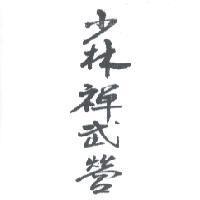 少林禅武營